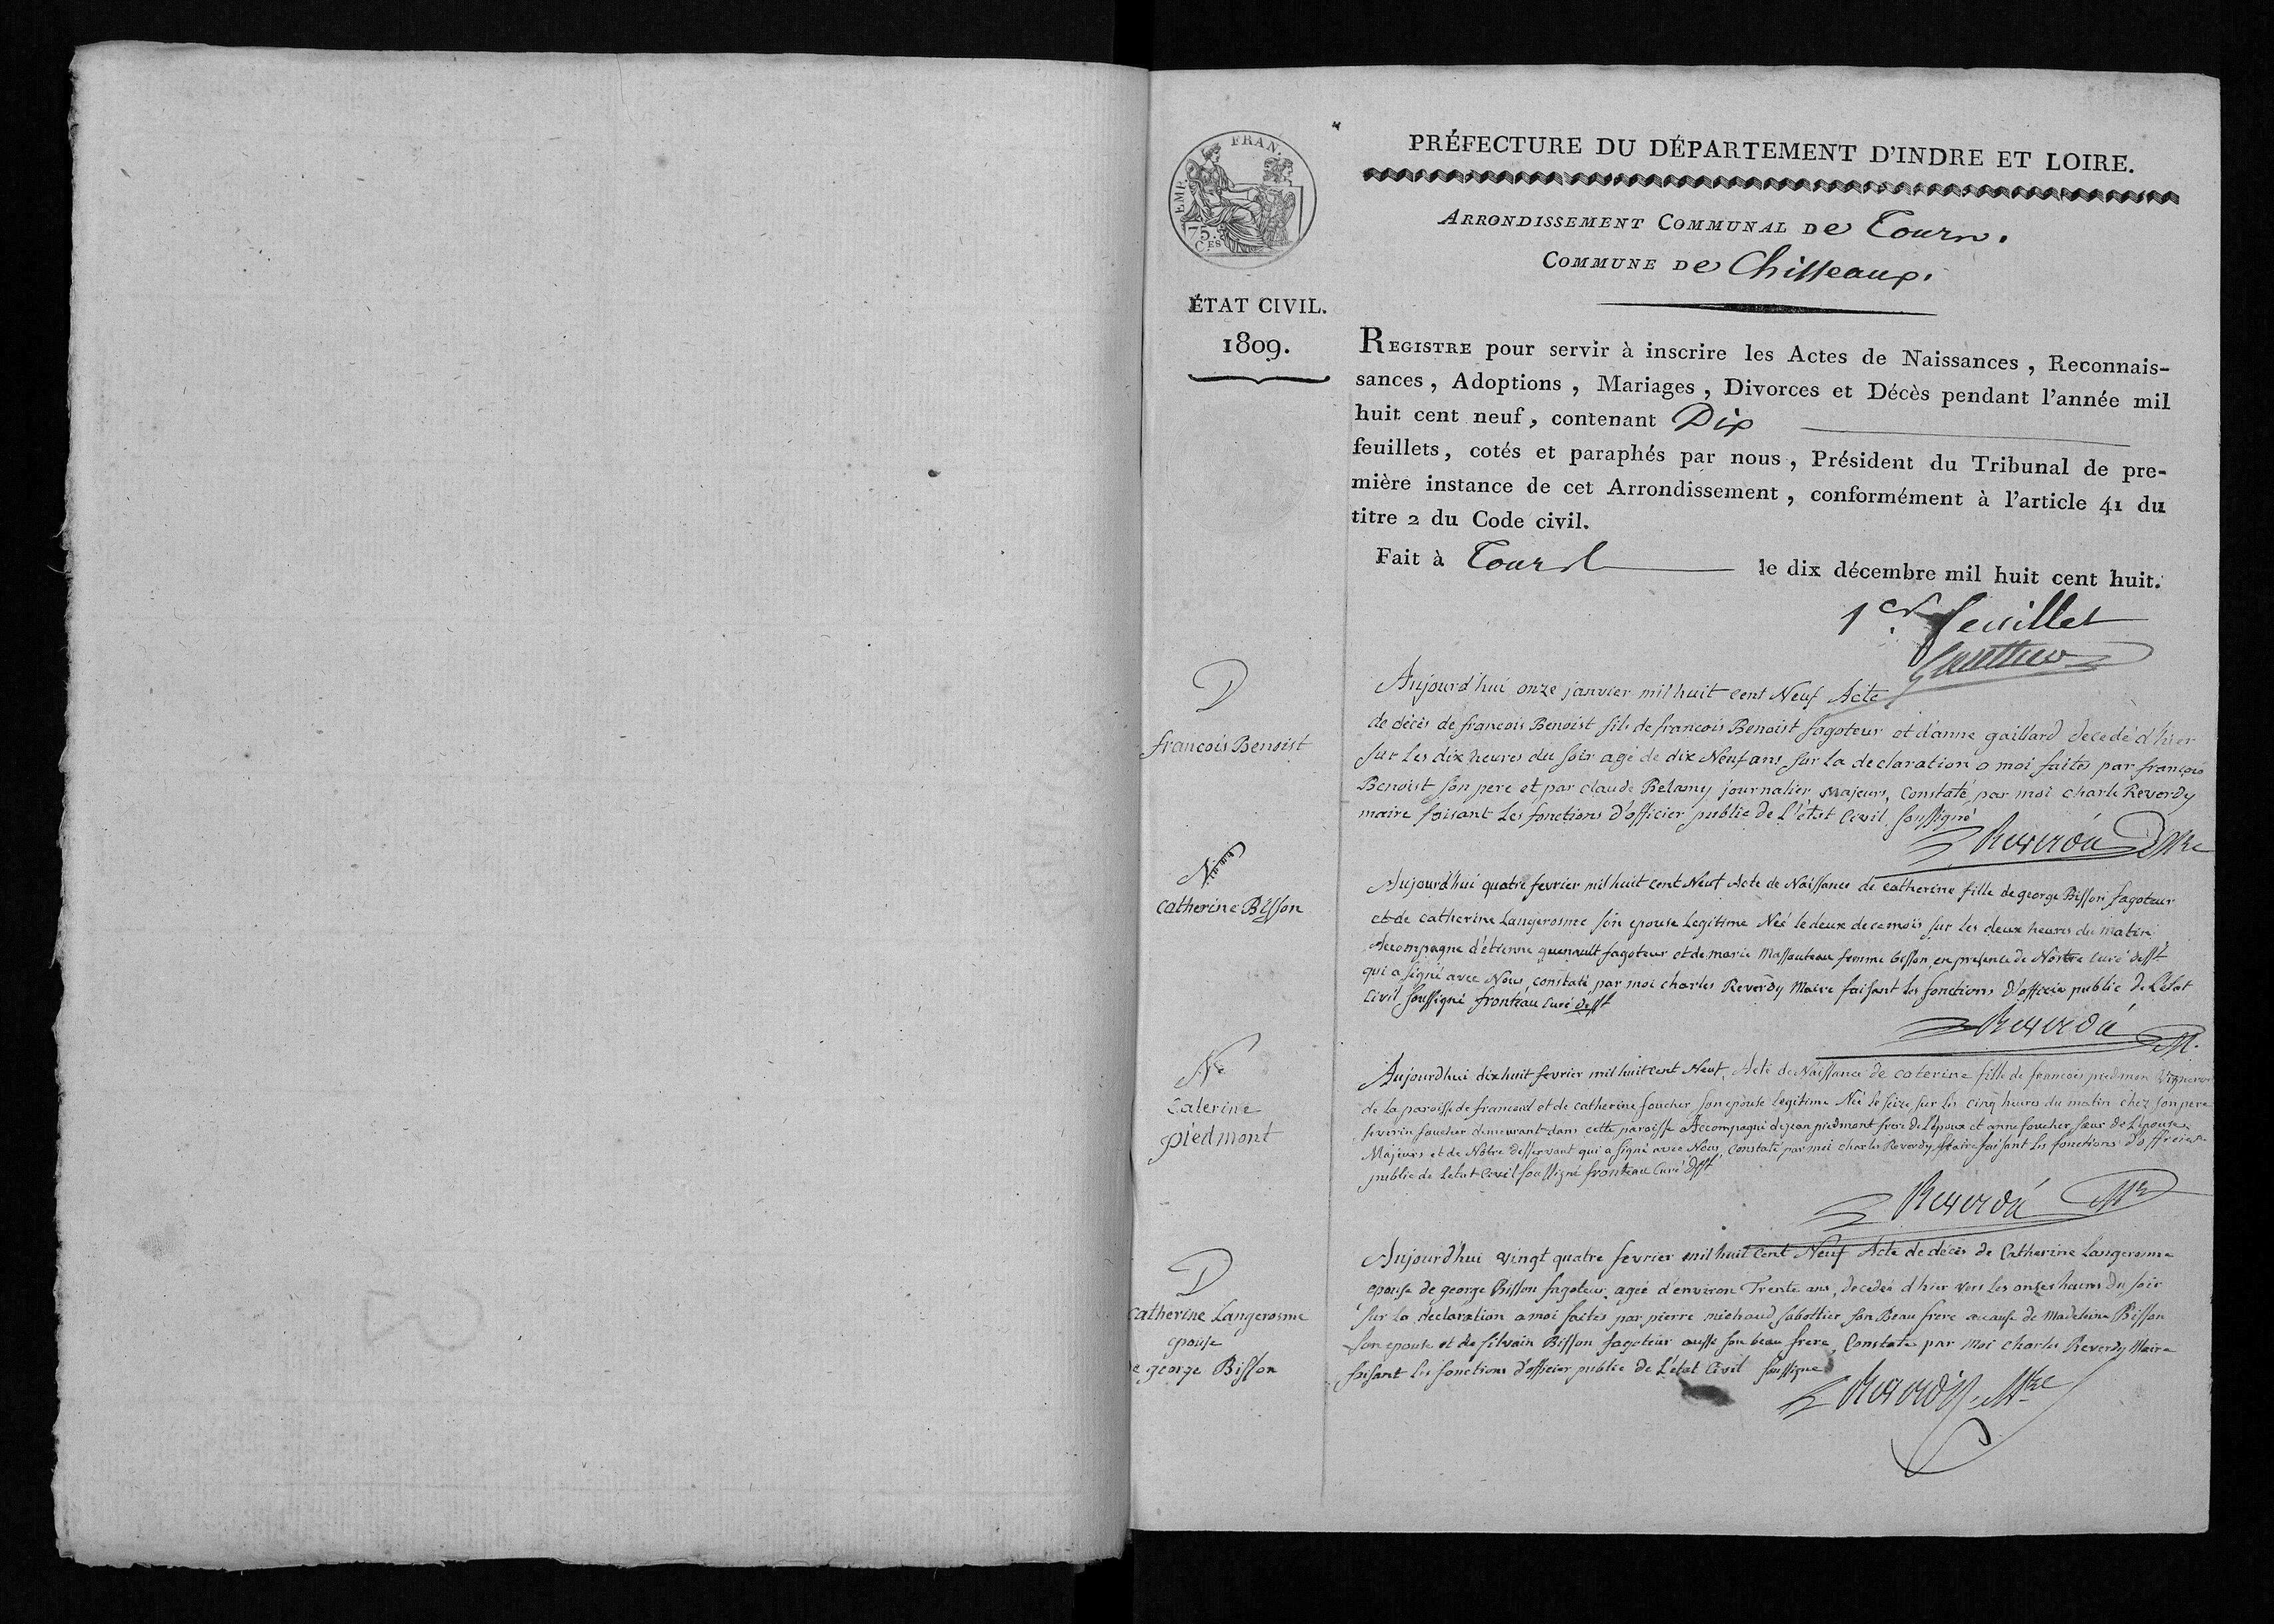 EMP. FRAN.
75.
C.ES
PRÉFECTURE DU DÉPARTEMENT D'INDRE ET LOIRE.
ARRONDISSEMENT COMMUNAL DE Tours.
COMMUNE DE Chisseaux.
ÉTAT CIVIL.
1809.
REGISTRE pour servir à inscrire les Actes de Naissances, Reconnais-
sances, Adoptions, Mariages, Divorces et Décès pendant l'année mil
huit cent neuf, contenant Dix
feuillets, cotés et paraphés par nous, Président du Tribunal de pre-
mière instance de cet Arrondissement, conformément à l'article 41 du
titre 2 du Code civil.
Fait à Tours le dix décembre mil huit cent huit.
1er feuillet
D
francois Benoist
Aujourd'hui onze janvier mil huit cent Neuf Acte
de décès de francois Benoist fils de francois Benoist fagoteur et d'anne gaillard decedé d'hier
sur les dix heures du soir agé de dix Neuf ans sur la declaration a moi faites par francois
Benoist son pere et par claude Belamy journalier Majeurs, Constaté par moi charle Reverdy
maire faisant les fonctions d'officier public de L'état Civil soussigné
Reverdy Mre
N
catherine Bisson
Aujourd'hui quatre fevrier mil huit cent Neuf Acte de Naissance de catherine fille de george Bisson fagoteur
et de catherine Langerosme son epouse Legitime Neé le deux de ce mois sur les deux heures du matin
Accompagne d'étienne guenault fagoteur et de marie Massauteau femme bisson, en presence de Nostre curé desst
qui a signé avec Nous, constaté par moi charles Reverdy Maire faisant les fonctions d'officier public de L'etat
Civil soussigné fronteau curé desst
Reverdy M.
Ne
Caterine
piedmont
Aujourdhui dix huit fevrier mil huit cent Neuf, Acte de Naissance de caterine fille de francois piedmon vigneron
de la paroisse de francueil et de catherine foucher son epouse legitime Neé le seize sur les cinq heures du matin chez son pere
severin foucher demeurant dans cette paroisse Accompagné de jean piedmont frere de l'epoux et anne foucher sœur de L'epouse
Majeurs et de Nôtre desservant qui a signé avec Nous, Constaté par moi charles Reverdy Maire faisant les fonctions d'officier
public de Letat Civil soussigné fronteau Curé Desst
Reverdy Mre
D
catherine Langerosme
epouse
de george Bisson
Aujourd'hui vingt quatre fevrier mil huit cent Neuf Acte de décès de Catherine Langerosme
epouse de george Bisson fagoteur, ageé d'environ Trente ans, decedeé d'hier vers les onze heures du soir
sur la declaration a moi faites par pierre michaud sabottier son Beau frere a cause de Madeleine Bisson
son epouse et de silvain Bisson fagoteur aussi son beau frere, Constaté par Moi charles Reverdy Maire
faisant les fonctions d'officier public de L'etat Civil soussigné
Reverdy Mre